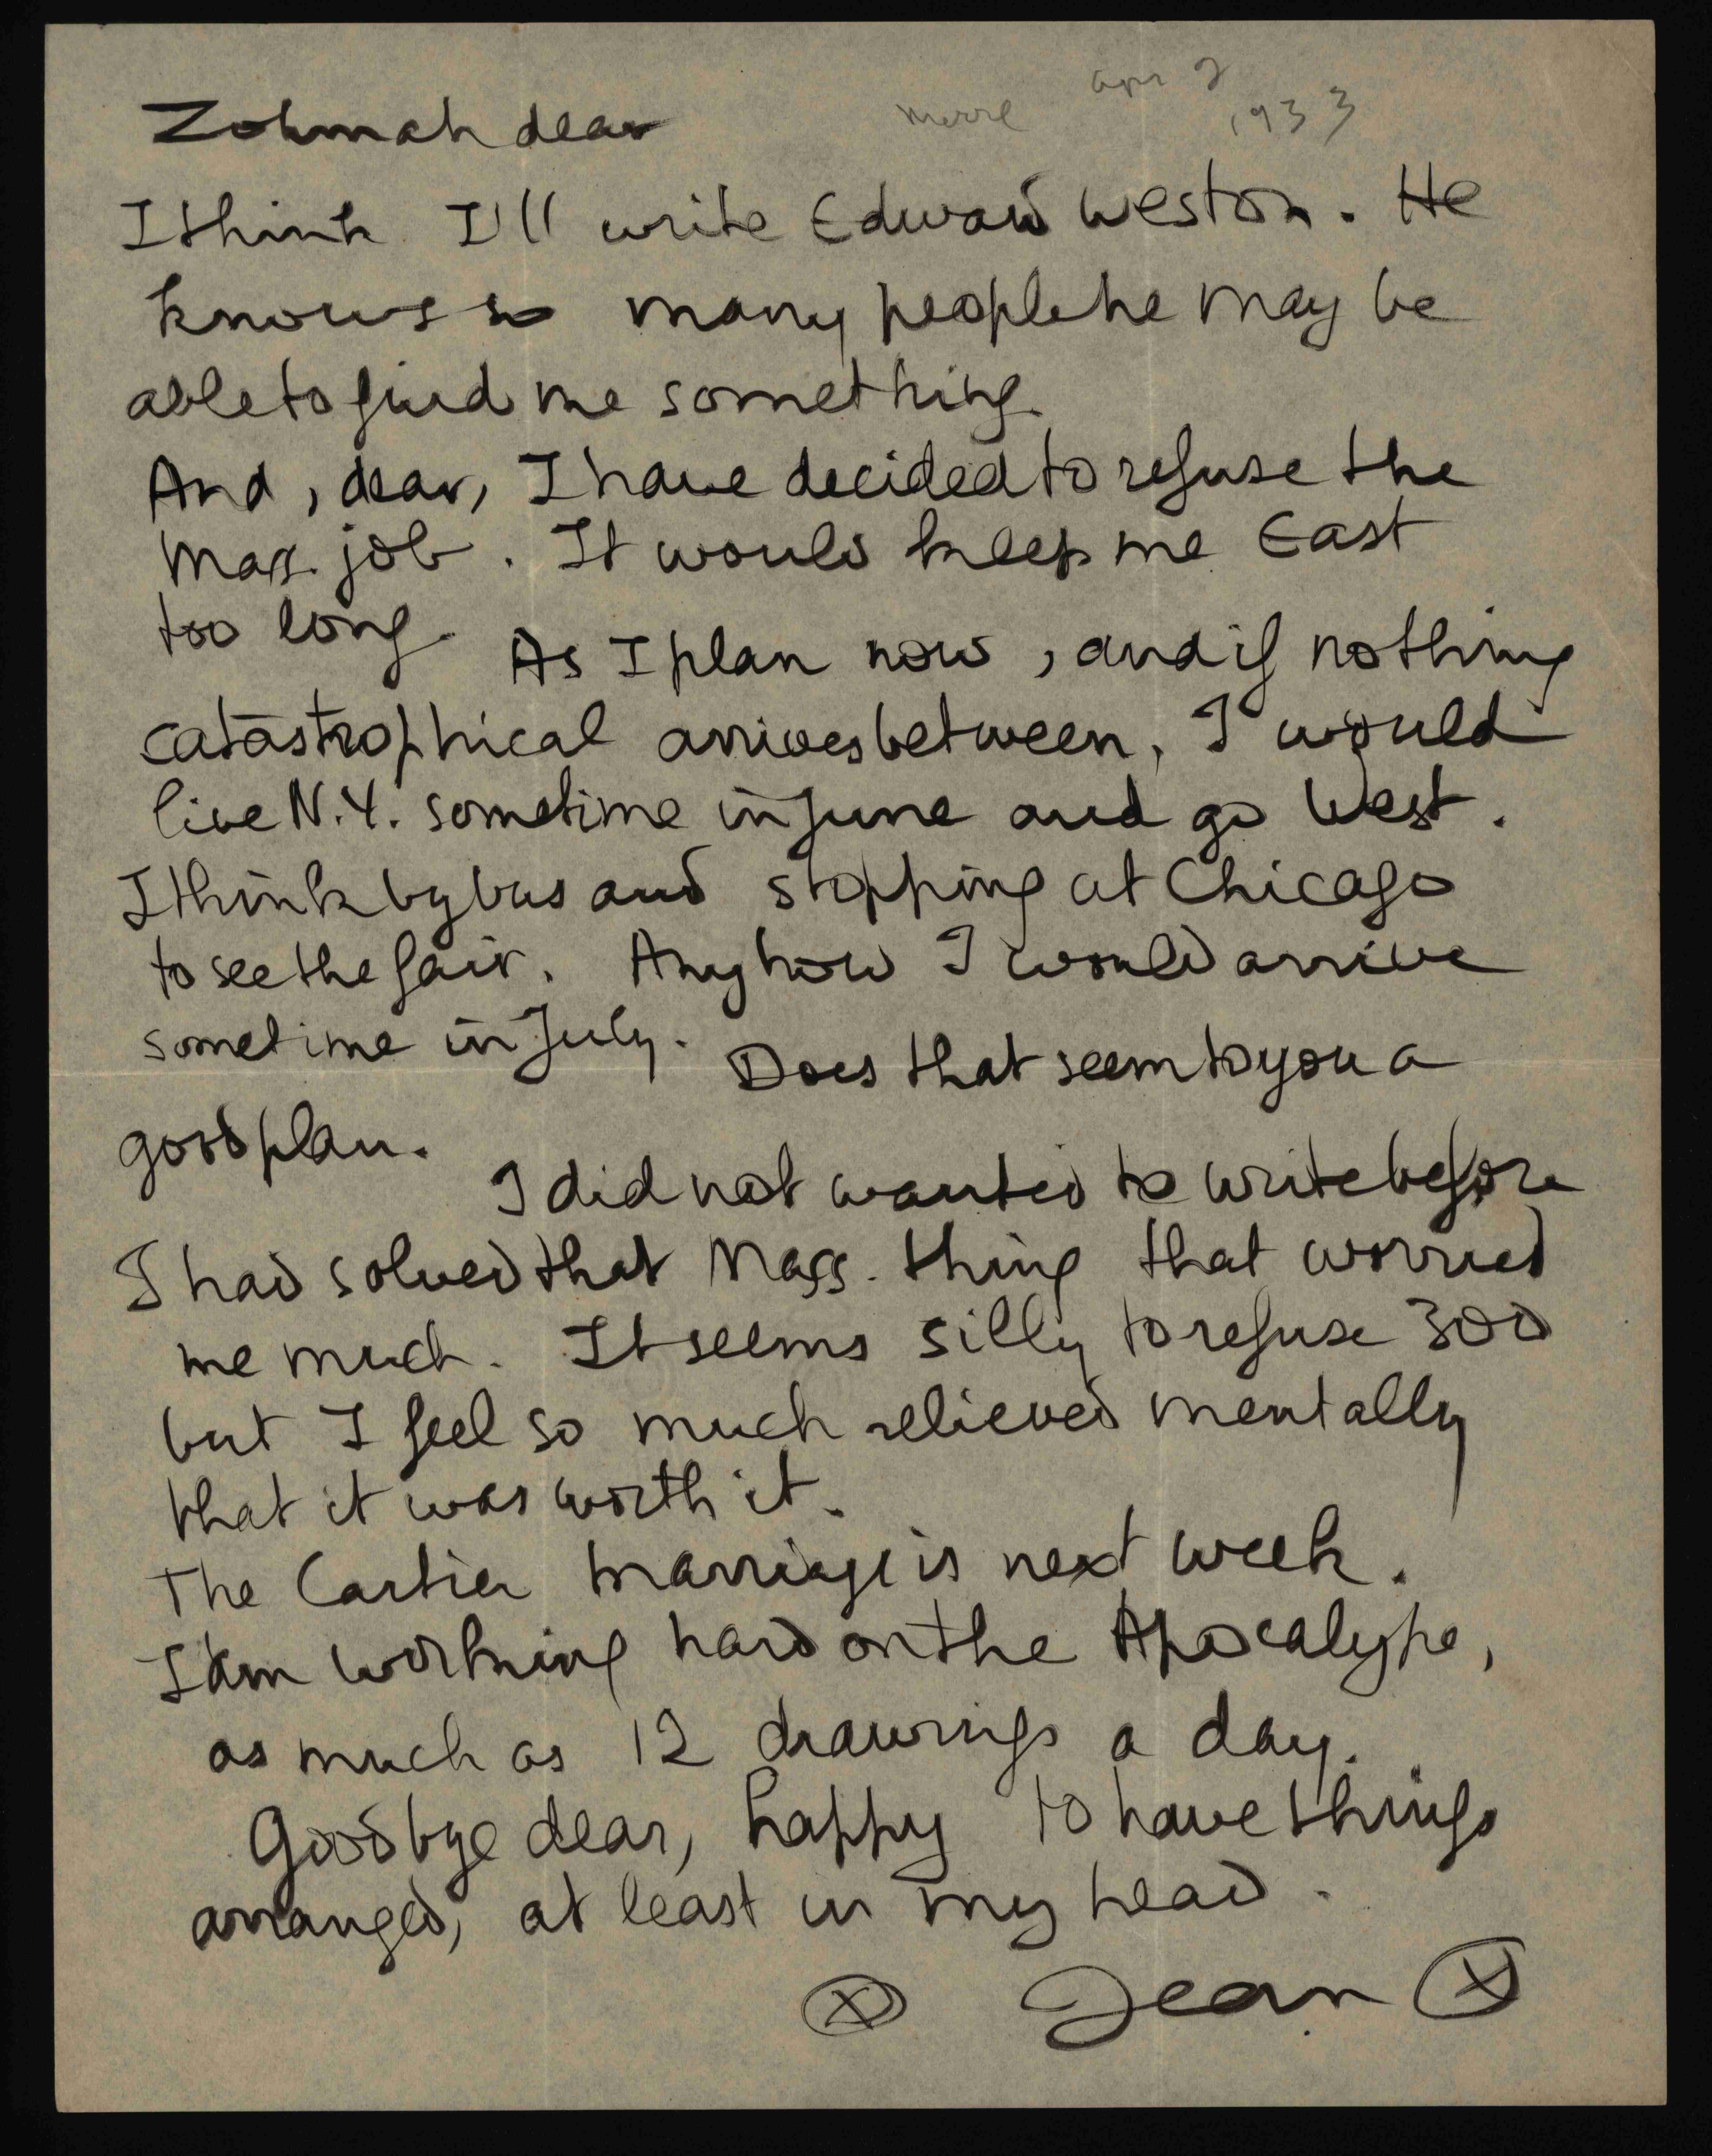 apr 2
1933
Zohmah dear
I think I'll write Edward Weston. He
knows so many people he may be
able to find me something.
And, dear, I have decided to refuse the
Mass. job. It would keep me East
too long. As I plan now, and if nothing
catastrophical arrives between, I would
live N.Y. sometime in June and go West.
I think by bus and stopping at Chicago
to see the fair. Anyhow I would arrive
sometime in July. Does that seem to you a
good plan.
I did not wanted to write before
I had solved that Mass. thing that worried
me much. It seems silly to refuse 300
but I feel so much relieved mentally
that it was worth it.
The Cartier marriage is next week.
I am working hard on the Apocalypse,
as much as 12 drawings a day.
Good bye dear, happy to have things
arranged, at least in my head.
Jean